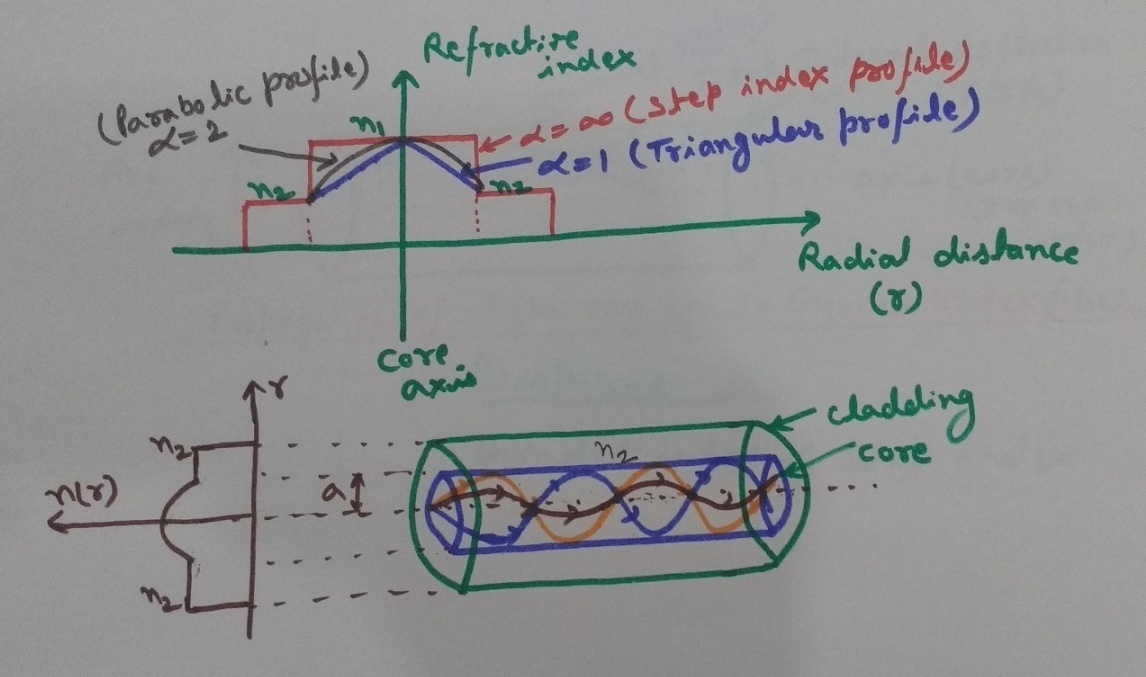 Refractive
index
(Parabolic profile)
α=2
n₁
α=∞ (Step index profile)
α=1 (Triangular profile)
n₂
n₂
Radial distance
(r)
core
axis
r
cladding
core
n₂
n₂
n(r)
a
n₂